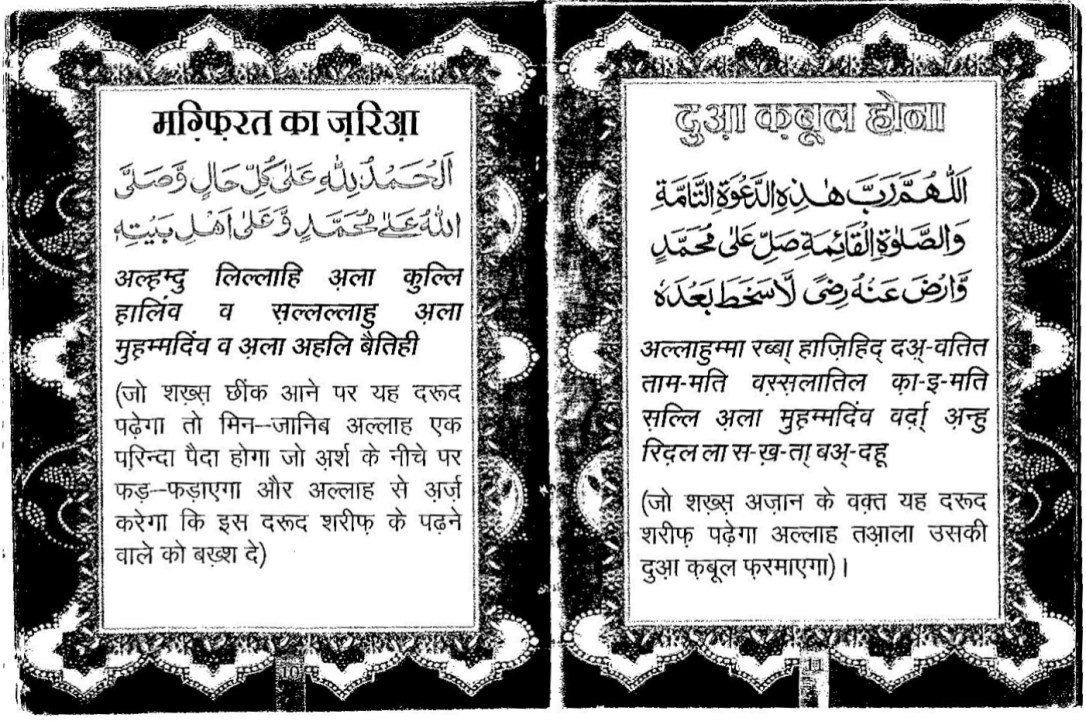 मग़्फ़िरत का ज़रिआ़
اَلْحَمْدُ لِلّٰهِ عَلٰى كُلِّ حَالٍ وَّصَلَّى
اللّٰهُ عَلٰى مُحَمَّدٍ وَّعَلٰى اَهْلِ بَيْتِهٖ
अल्ह़म्दु लिल्लाहि अ़ला कुल्लि
ह़ालिंव व स़ल्लल्लाहु अ़ला
मुह़म्मदिंव व अ़ला अहलि बैतिही
(जो शख़्स़ छींक आने पर यह दरूद
पढ़ेगा तो मिन--जानिब अल्लाह एक
परिन्दा पैदा होगा जो अ़र्श के नीचे पर
फड़--फड़ाएगा और अल्लाह से अ़र्ज़
करेगा कि इस दरूद शरीफ़ के पढ़ने
वाले को बख़्श दे)
10
दुआ़ क़बूल होना
اَللّٰهُمَّ رَبَّ هٰذِهِ الدَّعْوَةِ التَّامَّةِ
وَالصَّلٰوةِ الْقَائِمَةِ صَلِّ عَلٰى مُحَمَّدٍ
وَّارْضَ عَنْهُ رِضًى لَّا سَخَطَ بَعْدَهٗ
अल्लाहुम्मा रब्बा् हाज़िहिद् दअ़्-वतित
ताम-मति वस़्स़लातिल क़ा-इ-मति
स़ल्लि अ़ला मुह़म्मदिंव वर्द़ा् अ़न्हु
रिद़ल ला स-ख़-ता़ बअ़्-दहू
(जो शख़्स़ अज़ान के वक़्त यह दरूद
शरीफ़ पढ़ेगा अल्लाह तआ़ला उसकी
दुआ़ क़बूल फ़रमाएगा)।
11